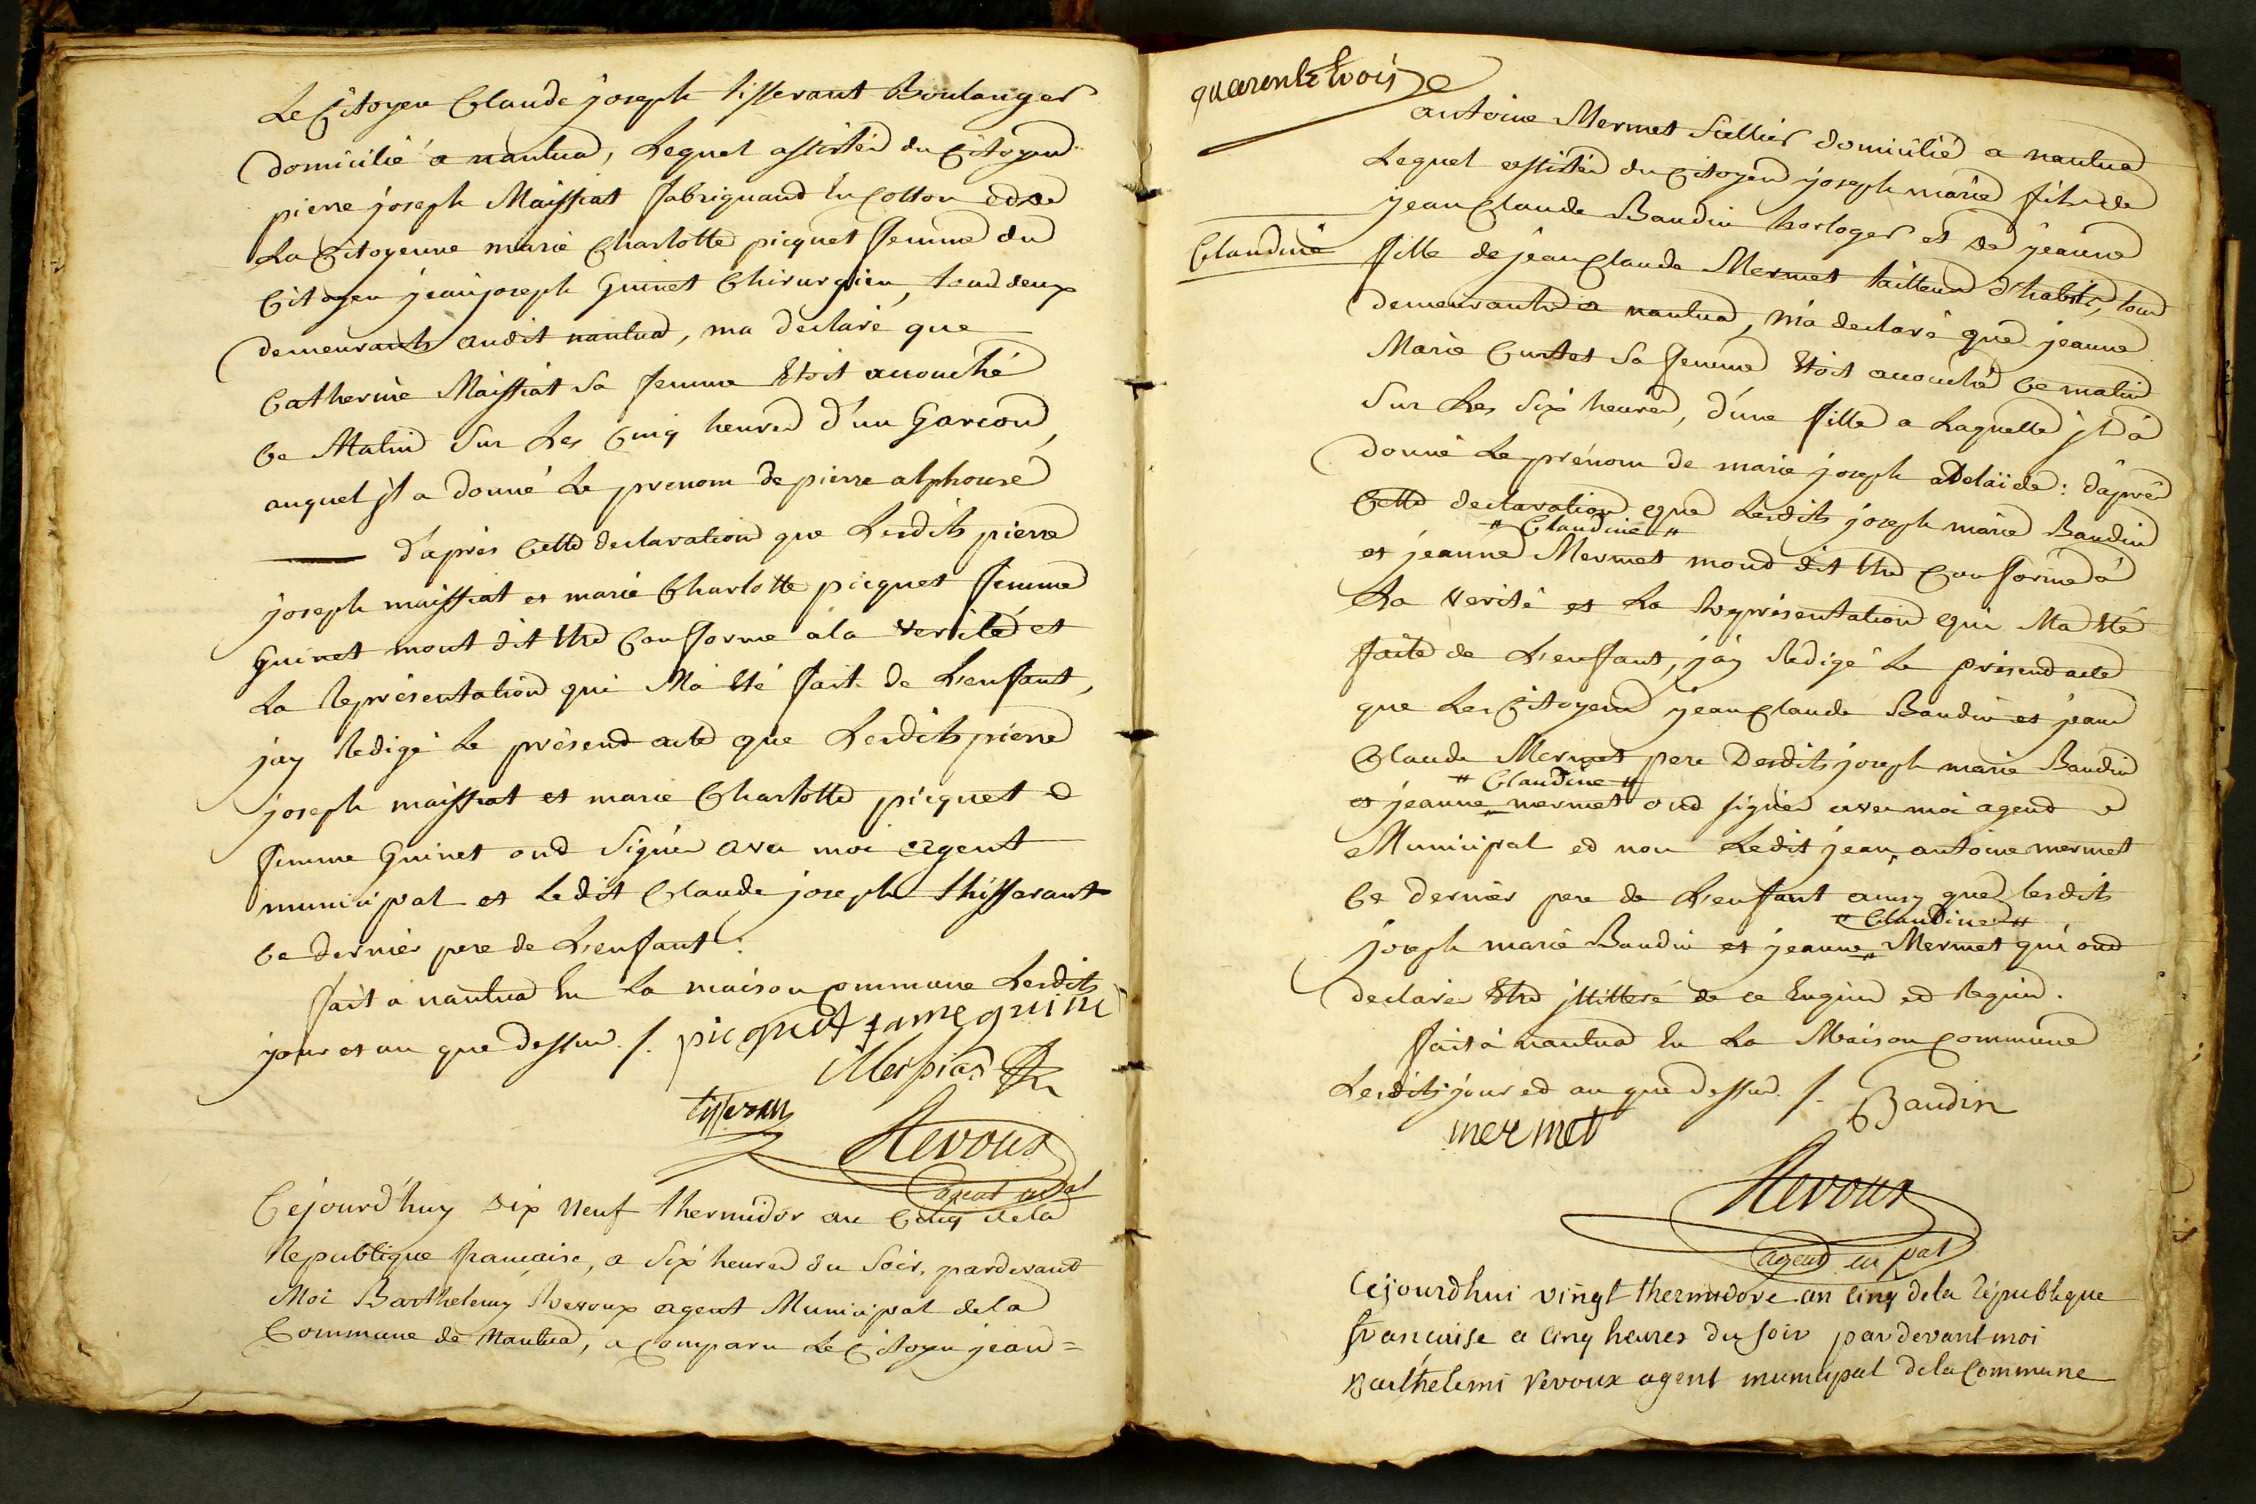 Le Citoyen Claude joseph tisserant Boulanger
domicilié a nantua, Lequel assisté du Citoyen
pierre joseph Maissiat fabriquand En Cotton et de
La Citoyenne marie Charlotte picquet femme du
Citoyen jean joseph Guinet Chirurgien, tous deux
demeurants audit nantua, ma declaré que
Catherine Maissiat Sa femme Etoit accouché
Ce Matin Sur Les Cinq heures d'un Garcon,
auquel jl a donné Le prenom de pierre alphonse
d'après Cette declaration que Lesdits pierre
joseph maissiat et marie Charlotte picquet femme
Guinet mont dit Etre Conforme a la verité et
La Représentation qui Ma Eté fait de L'enfant,
jay Redigé Le présend acte que Lesdits pierre
joseph maissiat et marie Charlotte picquet
femme Guinet ond Signés avec moi agent
municipal et Ledit Claude joseph thisserant
Ce dernier pere de L'enfant.
fait a nantua En La maison Commune Lesdits
jour et an que dessus. /. picquet fame guinet
Meissiat
tisseran
Revoux
agent mpal
Cejourd'huy dix Neuf thermidor an Cinq dela
Republique francaise, a Six heures du Soir, pardevant
Moi Barthelemy Revoux agent Municipal dela
Commune de Nantua, a Comparu Le Citoyen jean=
quarente trois
antoine Mermet Sellier domicilié a nantua
Lequel assisté du Citoyen joseph marie fils de
jean Claude Baudin horloger et de jeanne
Claudine fille de jean Claude Mermet tailleur d'habits, tous
demeurants a nantua, M'a declaré que jeanne
Marie Curtet Sa femme Etoit accouché Ce matin
Sur Les Six heures, d'une fille a Laquelle jl a
donné Le prénom de marie joseph adelaïde: d'après
Cette declaration que Lesdits joseph marie Baudin
" Claudine "
et jeanne Mermet mond dit Etre Conforme a
La verité et La Représentation qui Ma Eté
faite de L'enfant, j'ay Redigé Le présend acte
que Les Citoyens jean Claude Baudin et jean
Claude Mermet pere Desdits joseph marie Baudin
" Claudine "
et jeanne mermet ond signés avec moi agend
Municipal et non Ledit jean antoine mermet
Ce dernier pere de L'enfant ainsy que lesdits
" Claudine "
joseph marie Baudin et jeanne Mermet qui ond
declarés Etre jllitteré de ce Enquis ed Requis.
fait a nantua En La Maison Commune
Lesdits jour ed an que dessus. /. Baudin
mermet
Revoux
agend mpal
Cejourdhui vingt thermidore an cinq dela République
francaise a cinq heures du soir pardevant moi
Barthelemi Revoux agent municipal dela Commune